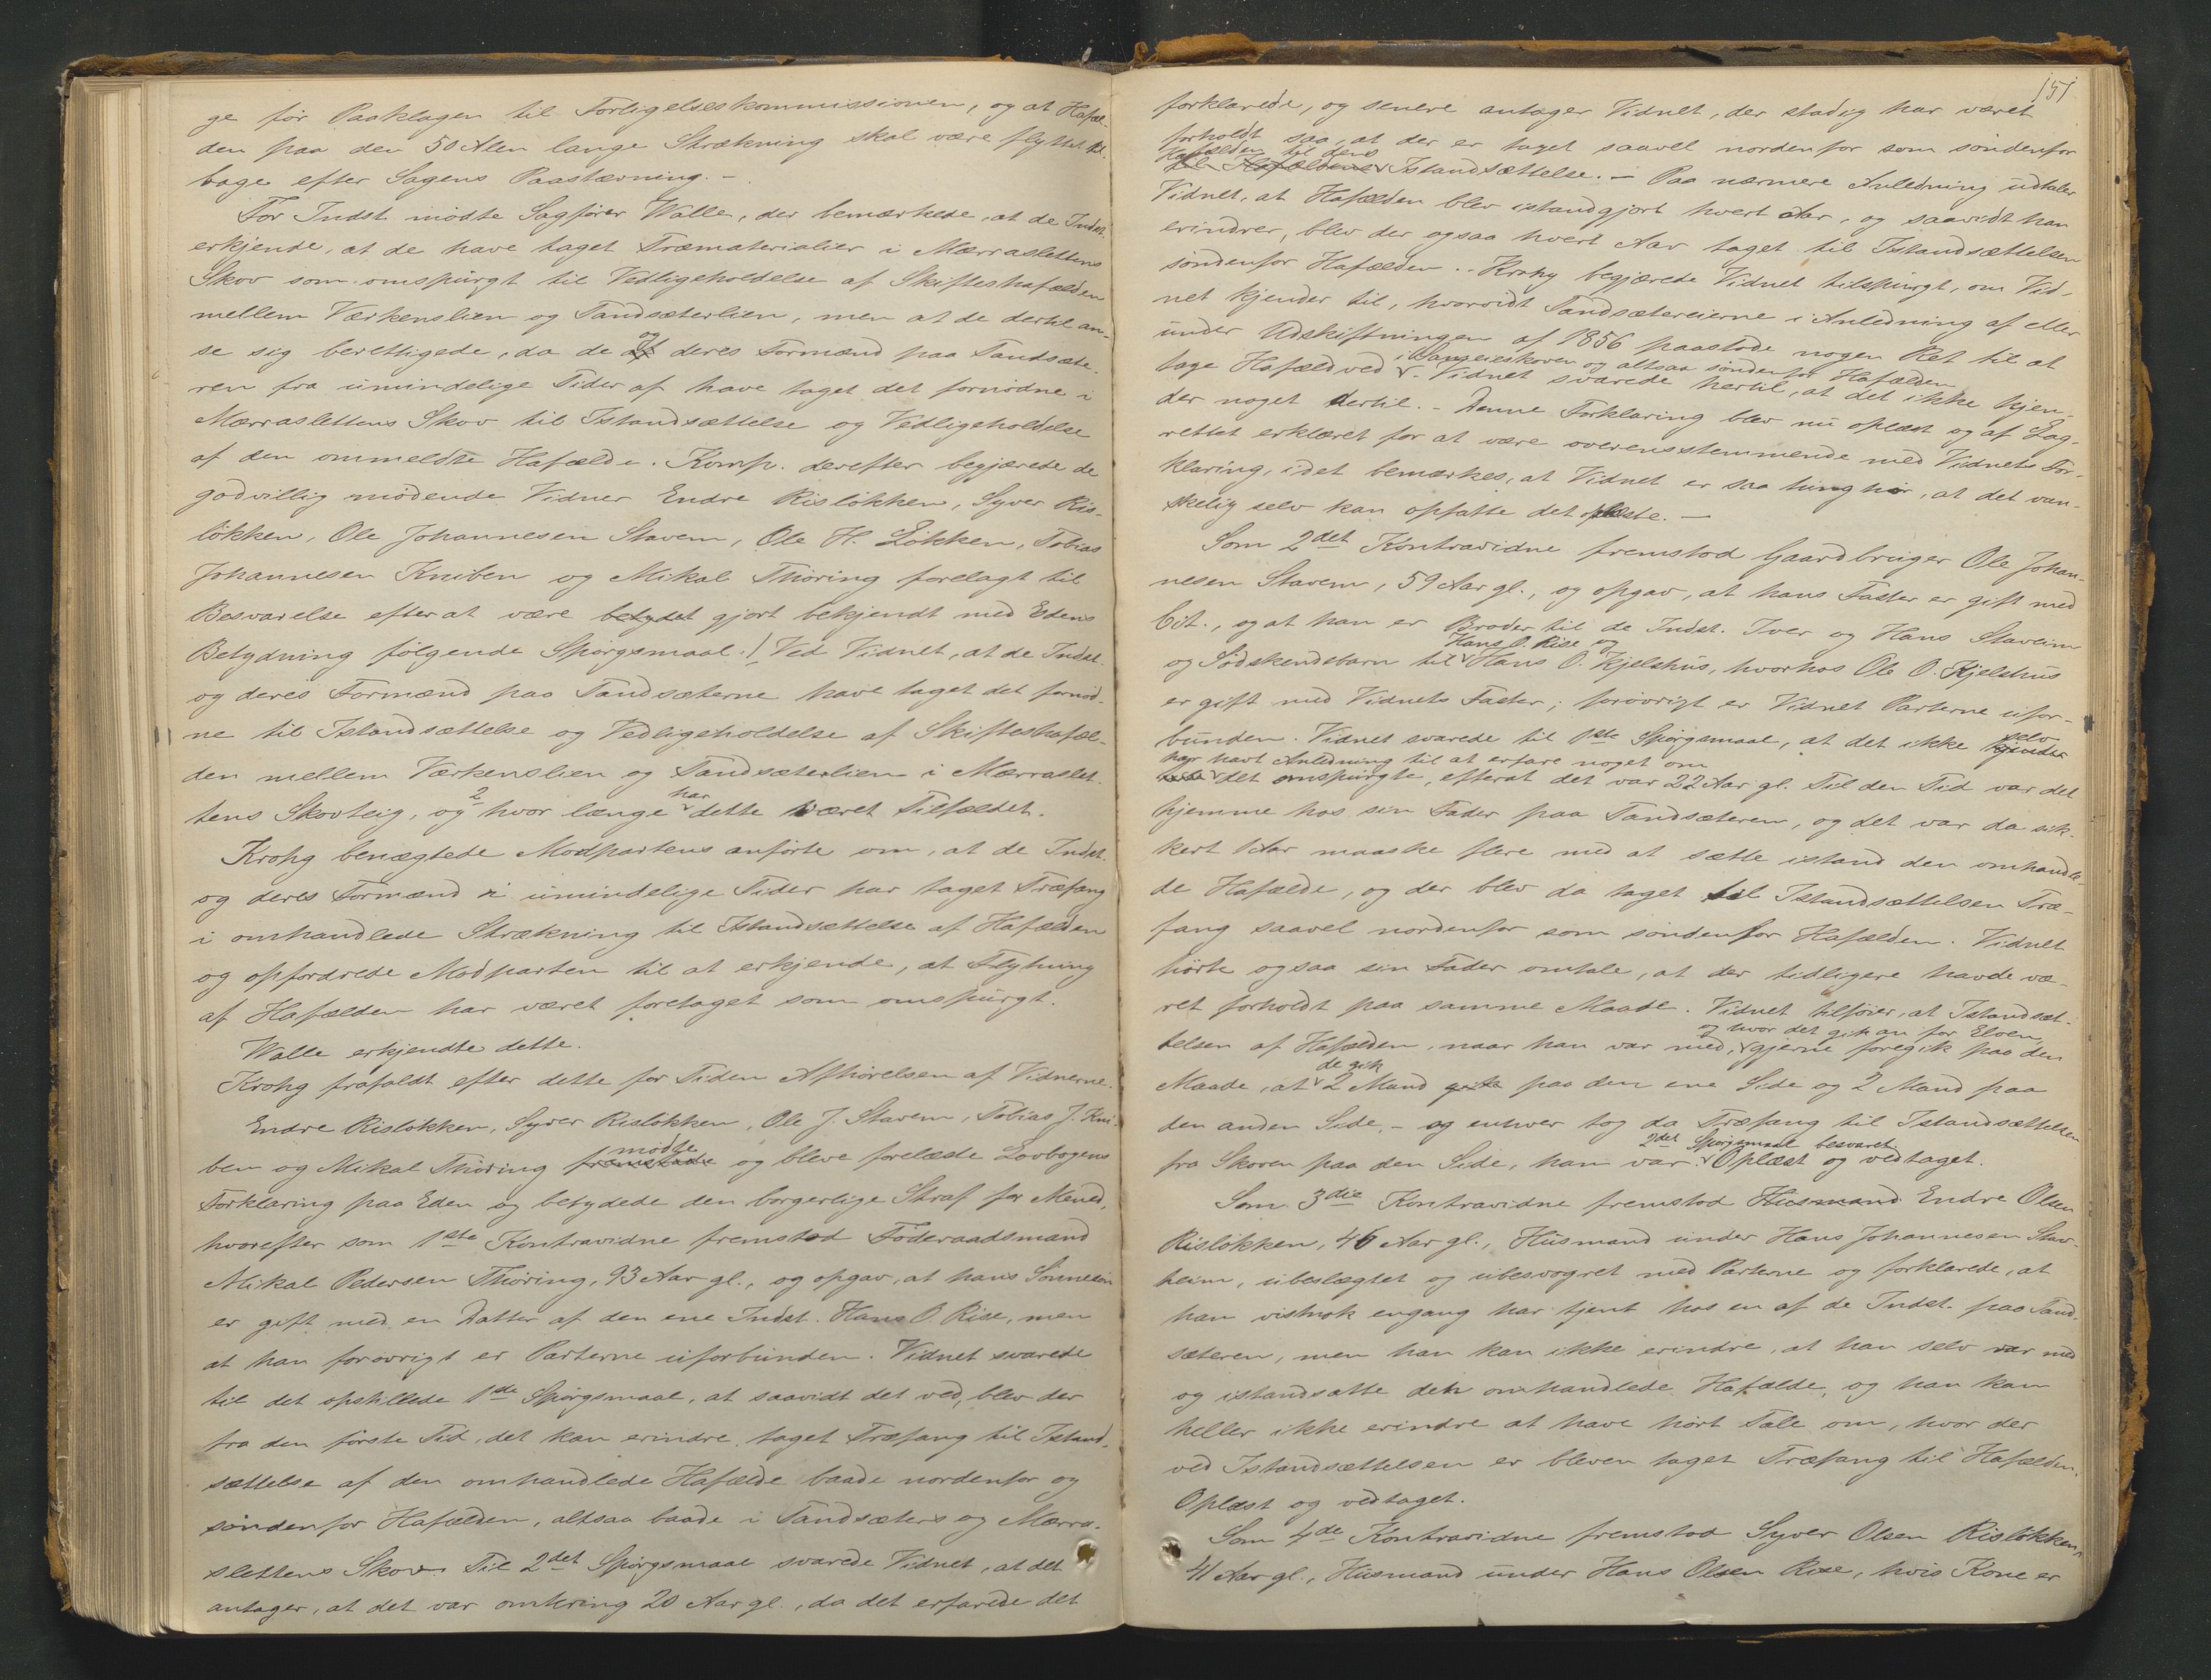 ge før Paaklagen til Forligelseskommissionen, og at Hafæl-
den paa den 50 Alen lange Strækning skal være flyttet til-
bage efter Sagens Paastævning. -
For Indst. mødte Sagfører Walle, der bemærkede, at de Indst.
erkjende, at de have taget Træmaterialier i Mærraslettens
Skov som omspurgt til Vedligeholdelse af Skifteshafælden
mellem Værkenslien og Tandsæterlien, men at de dertil an-
se sig berettigede, da de og deres Formænd paa Tandsæte-
ren fra umindelige Tider af have taget det fornødne i
Mærraslettens Skov til Istandsættelse og Vedligeholdelse
af den ommeldte Hafælde. Komp. derefter begjærede de
godvillig mødende Vidner Endre Risløkken, Syver Ris-
løkken, Ole Johannesen Stavem, Ole H. Løkken, Tobias
Johannesen Kniben og Mikal Thøring forelagt til
Besvarelse efterat være betydet gjort bekjendt med Edens
Betydning følgende Spørgsmaal: 1, Ved Vidnet, at de Indst.
og deres Formænd paa Tandsæterne have taget det fornød-
ne til Istandsættelse og Vedligeholdelse af Skifteshafæl-
den mellem Værkenslien og Tandsæterlien i Mærraslet-
tens Skovteig, og 2 hvor længe har dette været Tilfældet.
Krohg benægtede Modpartens anførte om, at de Indst.
og deres Formænd i umindelige Tider har taget Træfang
i omhandlede Strækning til Istandsættelse af Hafælden
og opfordrede Modparten til at erkjende, at Flytning
af Hafælden har været foretaget som omspurgt.
Walle erkjendte dette.
Krohg frafaldt efter dette for Tiden Afhørelsen af Vidnerne.
Endre Risløkken, Syver Risløkken, Ole J. Stavem, Tobias J. Kni-
ben og Mikal Thøring fremstode mødte og bleve forelæste Lovbogens
Forklaring paa Eden og betydede den borgerlige Straf for Mened,
hvorefter som 1ste Kontravidne fremstod Føderaadsmand
Mikal Pedersen Thøring, 93 Aar gl., og opgav, at hans Sønnesøn
er gift med en Datter af den ene Indst. Hans O. Rise, men
at han forøvrigt er Parterne uforbunden. Vidnet svarede
til det opstillede 1ste Spørgsmaal, at saavidt det ved, blev der
fra den første Tid, det kan erindre, taget Træfang til Istand-
sættelse af den omhandlede Hafælde baade nordenfor og
søndenfor Hafælden, altsaa baade i Tandsæters og Mærra-
slettens Skov. Til 2det Spørgsmaal svarede Vidnet, at det
antager, at det var omkring 20 Aar gl., da det erfarede det
151
forklarede, og senere antager Vidnet, der stadig har været
forholdt saa, at der er taget saavel nordenfor som søndenfor
Hafælden til dens
til Hafældens Istandsættelse. - Paa nærmere Anledning udtaler
Vidnet, at Hafælden blev istandgjort hvert Aar, og saavidt han
erindrer, blev der ogsaa hvert Aar taget til Istandsættelsen
søndenfor Hafælden. - Krohg begjærede Vidnet tilspurgt, om Vid-
net kjender til, hvorvidt Tandsætereierne i Anledning af eller
under Udskiftningen af 1856 paastode nogen Ret til at
i Langeieskoven og altsaa søndenfor Hafælden
tage Hafældved. - Vidnet svarede hertil, at det ikke kjen-
der noget dertil. - Denne Forklaring blev nu oplæst og af Lag-
rettet erklæret for at være overensstemmende med Vidnets For-
klaring, idet bemærkes, at Vidnet er saa tunghør, at det van-
skelig selv kan opfatte det oplæste. -
Som 2det Kontravidne fremstod Gaardbruger Ole Johan-
nesen Stavem, 59 Aar gl., og opgav, at hans Faster er gift med
Cit., og at han er Broder til de Indst. Iver og Hans Staveim
Hans O. Rise og
og Sødskendebarn til Hans O. Kjelshus, hvorhos Ole O. Kjelshus
er gift med Vidnets Faster; forøvrigt er Vidnet Parterne ufor-
bunden. Vidnet svarede til 1ste Spørgsmaal, at det ikke kjender selv
har havt Anledning til at erfare noget om
det omspurgte, efterat det var 22 Aar gl. Til den Tid var det
hjemme hos sin Fader paa Tandsæteren, og det var da sik-
kert 1 Aar maaske flere med at sætte istand den omhandle-
de Hafælde, og der blev da taget til Istandsættelsen Træ-
fang saavel nordenfor som søndenfor Hafælden. Vidnet
hørte ogsaa sin Fader omtale, at der tidligere havde væ-
ret forholdt paa samme Maade. Vidnet tilføier, at Istandsæt-
og hvor det gik an for Elven
telsen af Hafælden, naar han var med, gjerne foregik paa den
de gik
Maade, at 2 Mand gik paa den ene Side og 2 Mand paa
den anden Side, - og enhver tog da Træfang til Istandsættelsen
2det Spørgsmaal besvaret
fra Skoven paa den Side, han var. Oplæst og vedtaget.
Som 3die Kontravidne fremstod Husmand Endre Olsen
Risløkken, 46 Aar gl., Husmand under Hans Johannesen Stav-
heim, ubeslægtet og ubesvogret med Parterne og forklarede, at
han vistnok engang har tjent hos en af de Indst. paa Tand-
sæteren, men han kan ikke erindre, at han selv var med
og istandsatte den omhandlede Hafælde, og han kan
heller ikke erindre at have hørt Tale om, hvor der
ved Istandsættelsen er bleven taget Træfang til Hafælden.
Oplæst og vedtaget.
Som 4de Kontravidne fremstod Syver Olsen Risløkken,
41 Aar gl., Husmand under Hans Olsen Rise, hvis Kone er